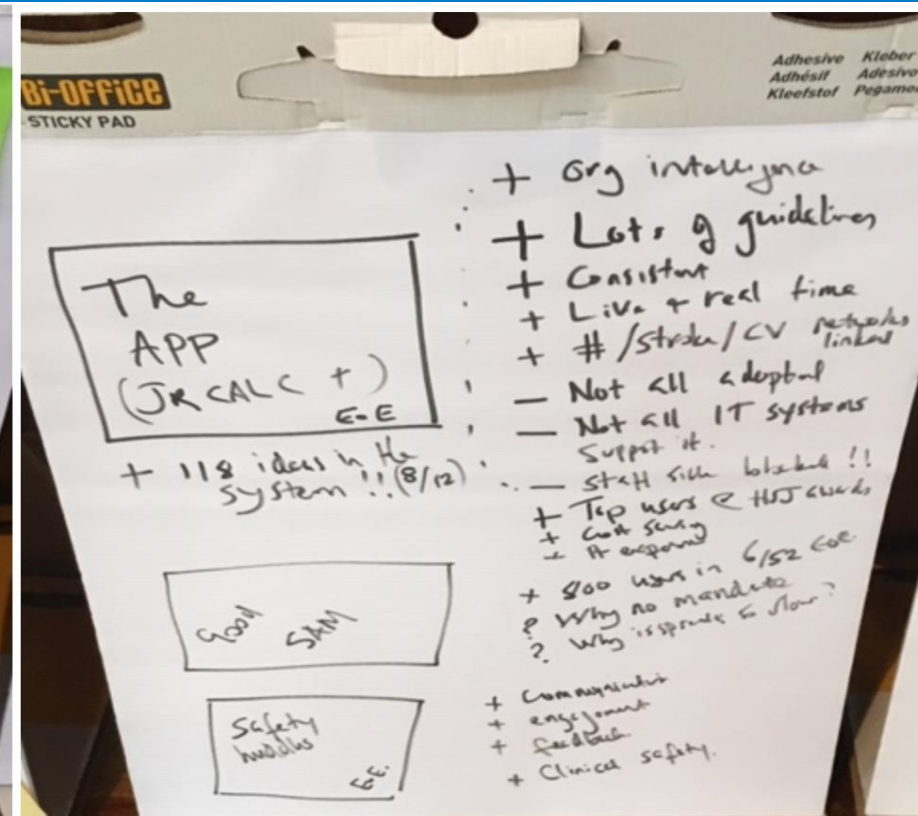 Bi-OFFiCE
STICKY PAD
Adhesive Kleber
Adhésif Adesivo
Kleefstof Pegamen
The
APP
(JRCALC +)
E-E
+ 118 ideas in the
system !! (8/12)
+ Org intelligence
+ Lots of guidelines
+ Consistent
+ Live + real time
+ # /Stroke/CV networks
linked
- Not all adopted
- Not all IT systems
support it.
- Staff side blocked !!
+ Top users @ HSJ awards
+ Cost saving
+ 800 users in 6/52 EoE
? Why no mandate
? Why is spread so slow?
Good
SAM
Safety
huddles
EE.
+ Communication
+ engagement
+ feedback
+ Clinical safety.